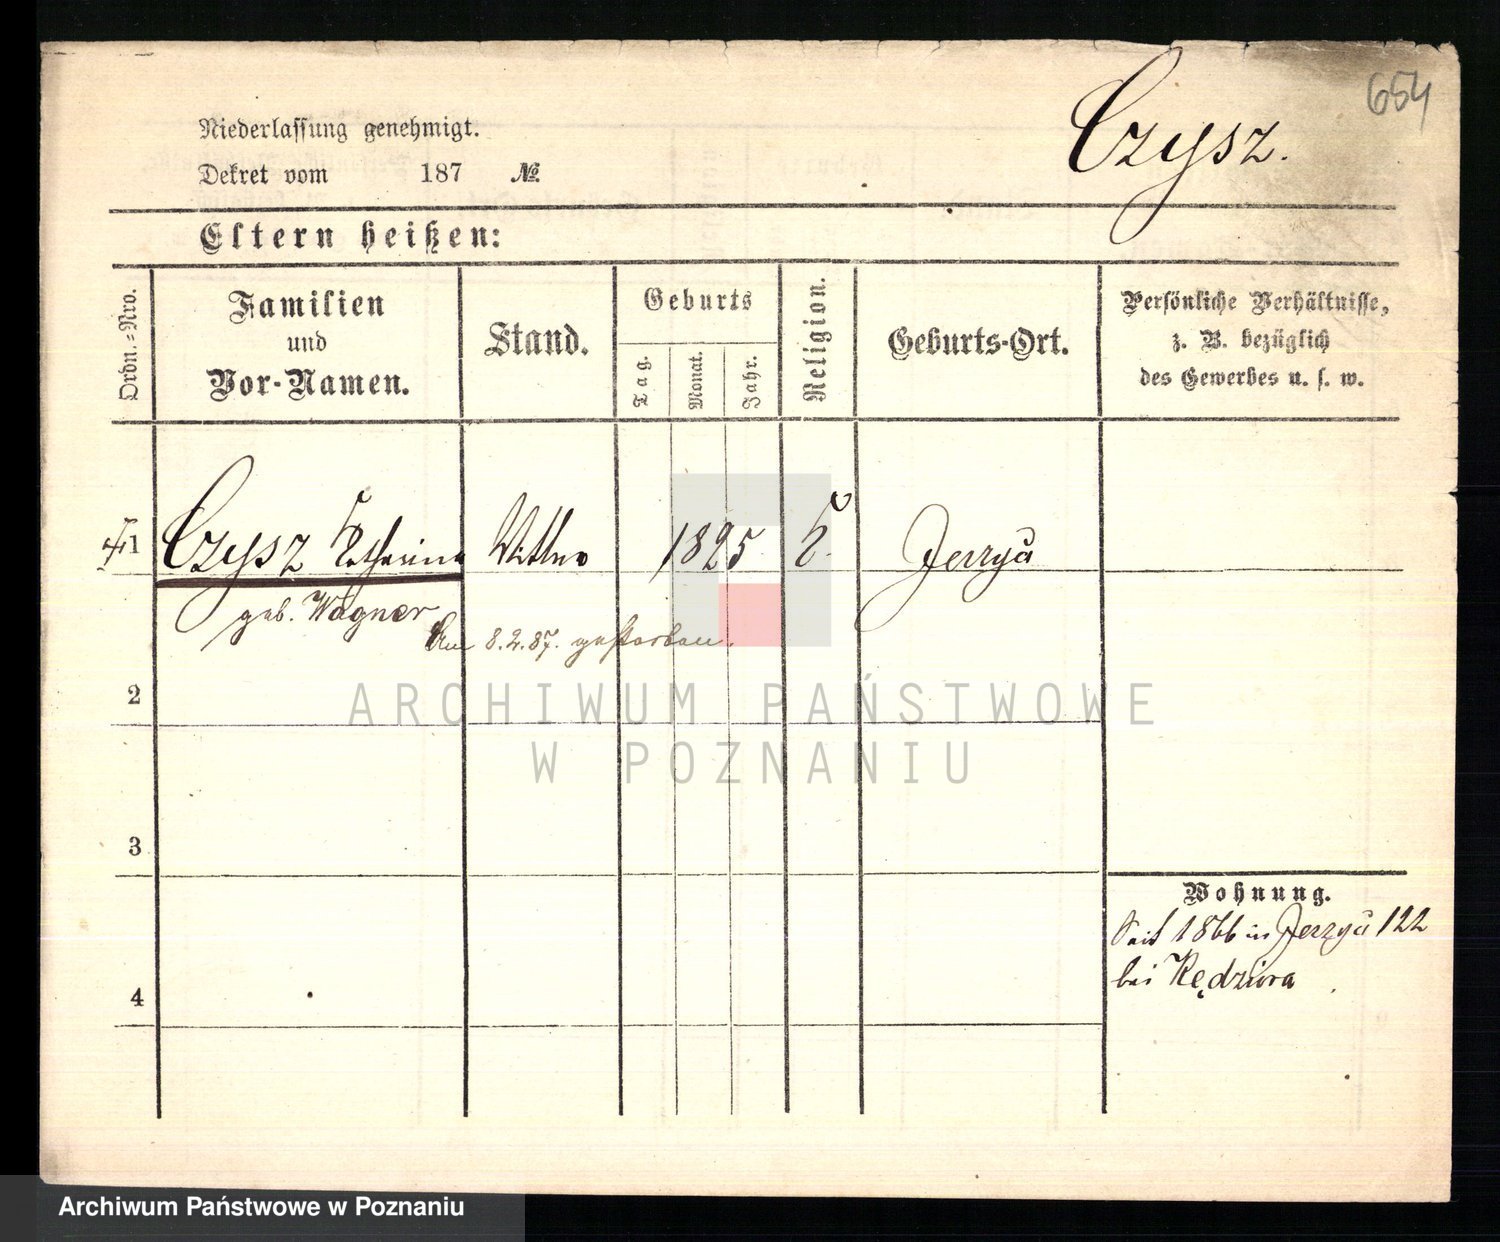 654
Czysz.
Niederlassung genehmigt.
Dekret vom 187 №
Eltern heißen:
Ordn.=Nro.
Familien
und
Vor-Namen.
Stand.
Geburts
Tag.
Monat.
Jahr.
Religion.
Geburts-Ort.
Persönliche Verhältnisse,
z. B. bezüglich
des Gewerbes u. s. w.
1 Czysz Katharina Wittwe 1825 k. Jerzyc
geb. Wagner
Am 8.2.87. gestorben.
2
ARCHIWUM PAŃSTWOWE
W POZNANIU
3
Wohnung.
Seit 1866 in Jerzyc 122
bei Kędziora
4
Archiwum Państwowe w Poznaniu